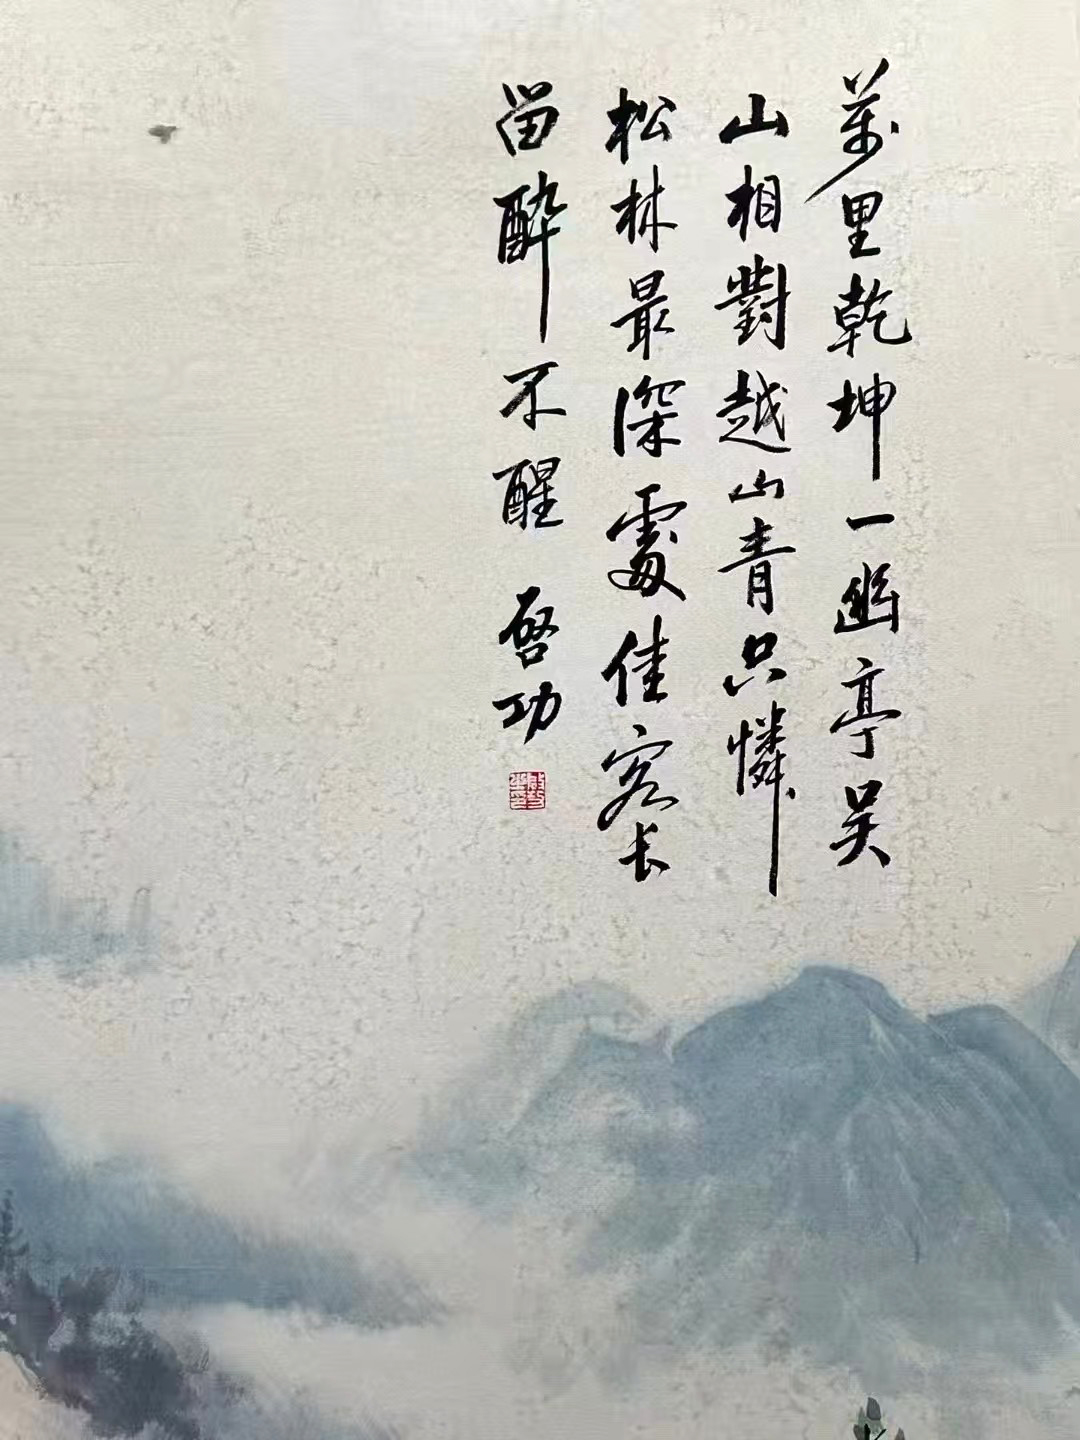 萬里乾坤一幽亭吴
山相對越山青只憐
松林最深處佳客长
留醉不醒 啓功